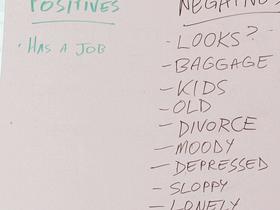 POSITIVES
· HAS A JOB
- LOOKS?
- BAGGAGE
- KIDS
- OLD
- DIVORCE
- MOODY
- DEPRESSED
- SLOPPY
- LONELY